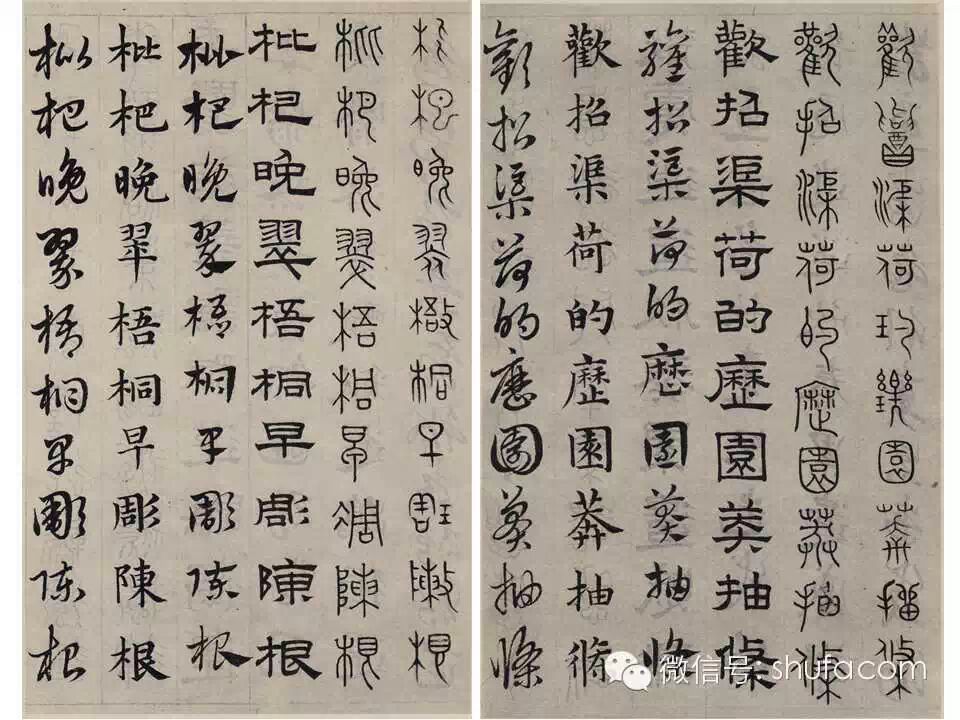 歡招渠荷的歷園莽抽條
歡招渠荷的歷園莽抽條
歡招渠荷的歷園莽抽條
歡招渠荷的歷園莽抽條
歡招渠荷的歷園莽抽條
歡招渠荷的歷園莽抽條
枇杷晚翠梧桐早彫陳根
枇杷晚翠梧桐早彫陳根
枇杷晚翠梧桐早彫陳根
枇杷晚翠梧桐早彫陳根
枇杷晚翠梧桐早彫陳根
枇杷晚翠梧桐早彫陳根
微信号: shufacom